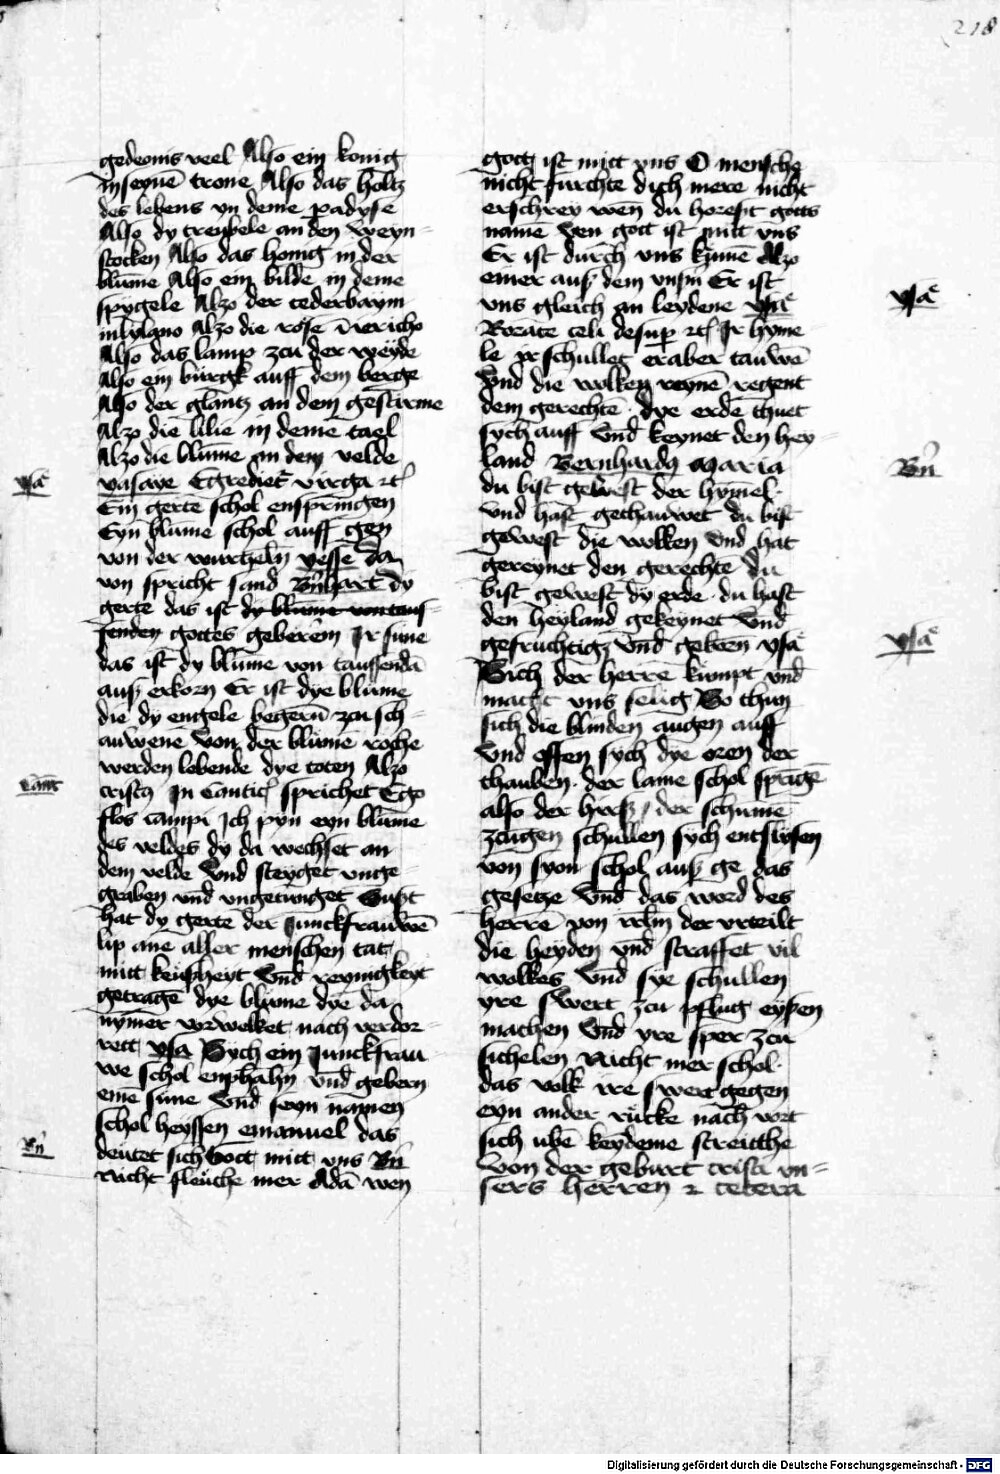 218
gedeonis veel Also ein konig
in seynē trone Also das holtz
des lebens yn deme padyse
Also dy treubele an den weyn-
stocken Also das honig in der
blume Also ein bilde in deme
spygele Alzo der cederbaym
in lylano Alzo die rose ī iericho
Also das lamp zcu der weyde
Also ein burgk auff dem berge
Also der glantz an dem gestirme
Alzo die lilie in deme tael
Alzo die blume an dem velde
ysaye Egrediet virga etc
Ein gerte schol enspringen
Eyn blume schol auff gen
von der wurcheln yesse da
von spricht sand Bn̄hart dy
gerte das ist dy blume von taus-
senden gottes gebererin Ir sune
das ist dy blume von taussendē
auß erkorn Er ist dye blume
die dy engele begern zcu sch-
auwene Von der blumē roche
werden lebende dye toten Alzo
cristus In Cantic sprichet Ego
flos campi Ich pyn eyn blume
des veldes dy da wechset an
dem velde Vnd steyget vnge-
graben vnd vngetunget Sust
hat dy gerte der Junckfrauwē
lip ane aller menschen tat
mitt keusheyt Vnd reynigkeyt
getragē dye blume dye da
nymer vorwelket nach verdor-
rett ysa Sych ein Junckfrau
we schol enphahn vnd gebern
eine sune Vnd seyn namen
schol heyssen emanuel das
deutet sich Gott mitt vns Bn̄
Nicht fleuche mer Adā wen
gott ist mitt vns O mensche
nicht furchte dich mere nicht
erschrey wen du horest gotts
name Wen gott ist mitt vns
Er ist durch vns kumē Alzo
einer auß dem vnsin Er ist
vns gleich an leydene ysa
Rorate celi desup etc Ir hyme-
le yr schullet eraber tauwē
Vnd die wolken reynē regent
dem gerechtē dye erde thuet
sych auff Vnd keynet den hey-
land Bernhardus Maria
du bist gewest der hymel
vnd hast gethauwet du bist
gewest die wolken Vnd hat
gereynet den gerechte du
bist gewest dy erde du hast
den heyland gekeynet Vnd
gefruchtigz Vnd gebern ysa
Sich der herre kumpt vnd
macht vns selig So thun
sich die blinden augen auff
Vnd offen sych dye oren der
thauben der lame schol sprīgē
also der hirsz der schumē
zcugen schullen sych entslysen
von syon schol auß ge das
gesetze Vnd das word des
herrē von irlm der vrteilt
die heyden vnd straffet vil
wolkes Vnd sye schullen
yre swert zcu pflug eysen
machen Vnd yre sper zcu
sichelen Nicht mer schol
das volk ire swert gegen
eyn ander rucke nach wrt
sich ubē keydeme streitthe
Von der geburt cristi vn-
sers herren et cetera
ysa
cant
Bn̄
ysa
Bn̄
ysa
Digitalisierung gefördert durch die Deutsche Forschungsgemeinschaft - DFG